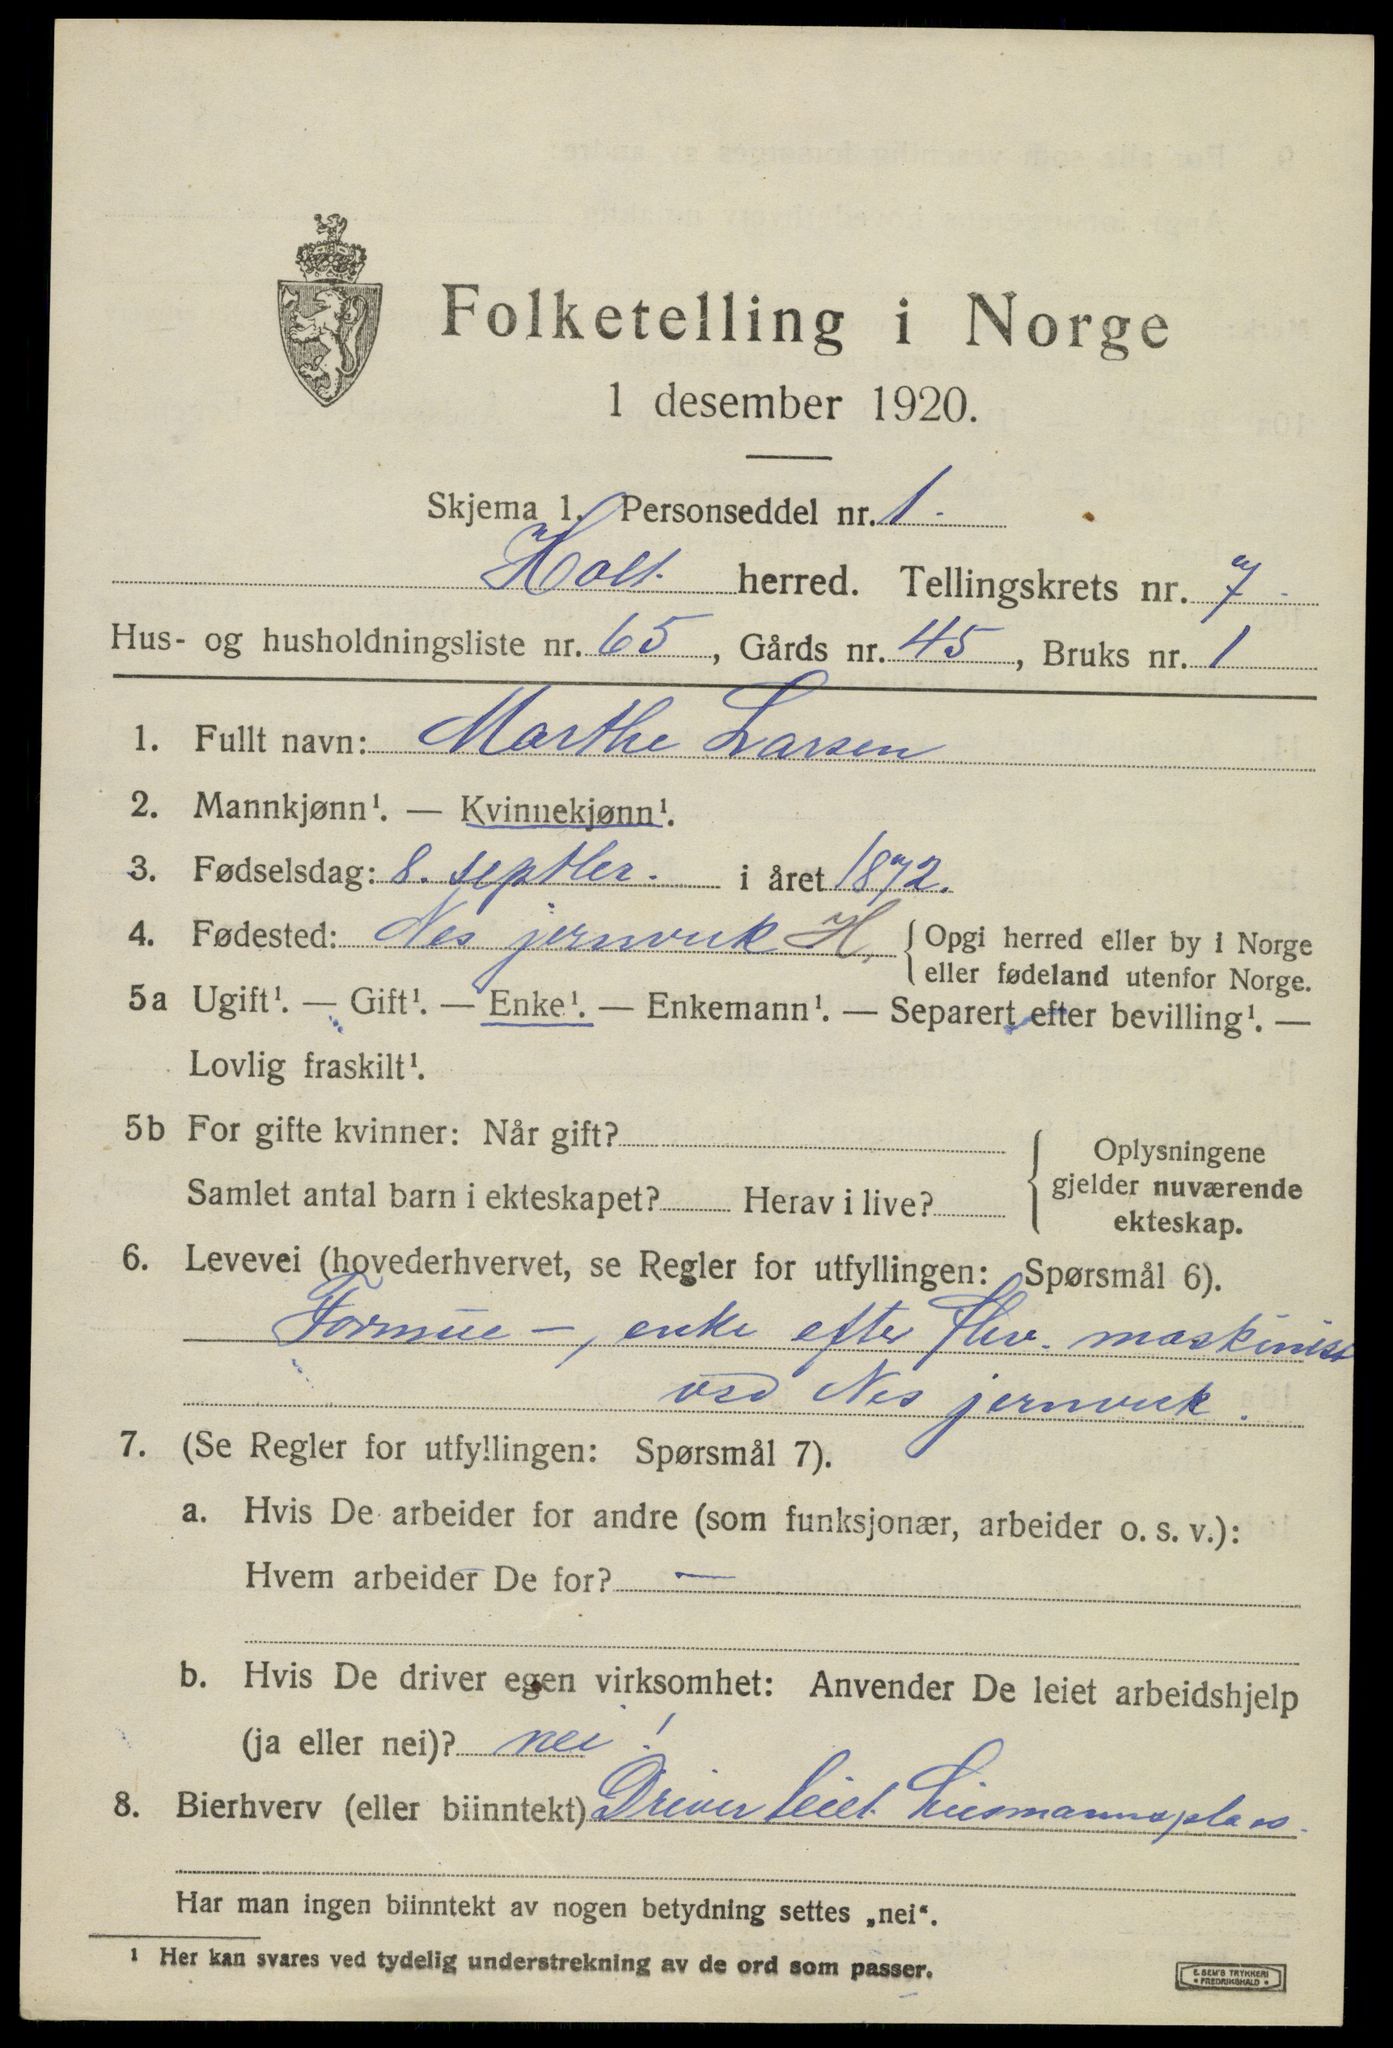 Folketelling i Norge
1 desember 1920.
Skjema 1. Personseddel nr. 1.
Holt herred. Tellingskrets nr. 7.
Hus- og husholdningsliste nr. 65, Gårds nr. 45, Bruks nr. 1
1. Fullt navn: Marthe Larsen
2. Mannkjønn¹. — Kvinnekjønn¹.
3. Fødselsdag: 8. septber. i året 1872.
4. Fødested: Nes jernverk H. { Opgi herred eller by i Norge
eller fødeland utenfor Norge.
5a Ugift¹. — Gift¹. — Enke¹. — Enkemann¹. — Separert efter bevilling¹. —
Lovlig fraskilt¹.
5b For gifte kvinner: Når gift?
Samlet antal barn i ekteskapet? Herav i live?
{ Oplysningene
gjelder nuværende
ekteskap.
6. Levevei (hovederhvervet, se Regler for utfyllingen: Spørsmål 6).
Formue —, enke efter maskinist
ved Nes jernverk.
7. (Se Regler for utfyllingen: Spørsmål 7).
a. Hvis De arbeider for andre (som funksjonær, arbeider o. s. v.):
Hvem arbeider De for? —
b. Hvis De driver egen virksomhet: Anvender De leiet arbeidshjelp
(ja eller nei)? nei!
8. Bierhverv (eller biinntekt) Driver leiet husmannsplass.
Har man ingen biinntekt av nogen betydning settes „nei“.
¹ Her kan svares ved tydelig understrekning av de ord som passer.
E. SEM'S TRYKKERI
• FREDRIKSHALD •